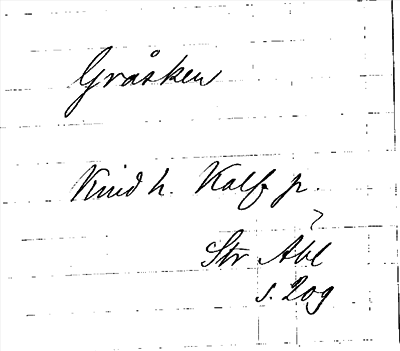 Gråsken
Kind h. Kalf p.
Str Abl
s. 209